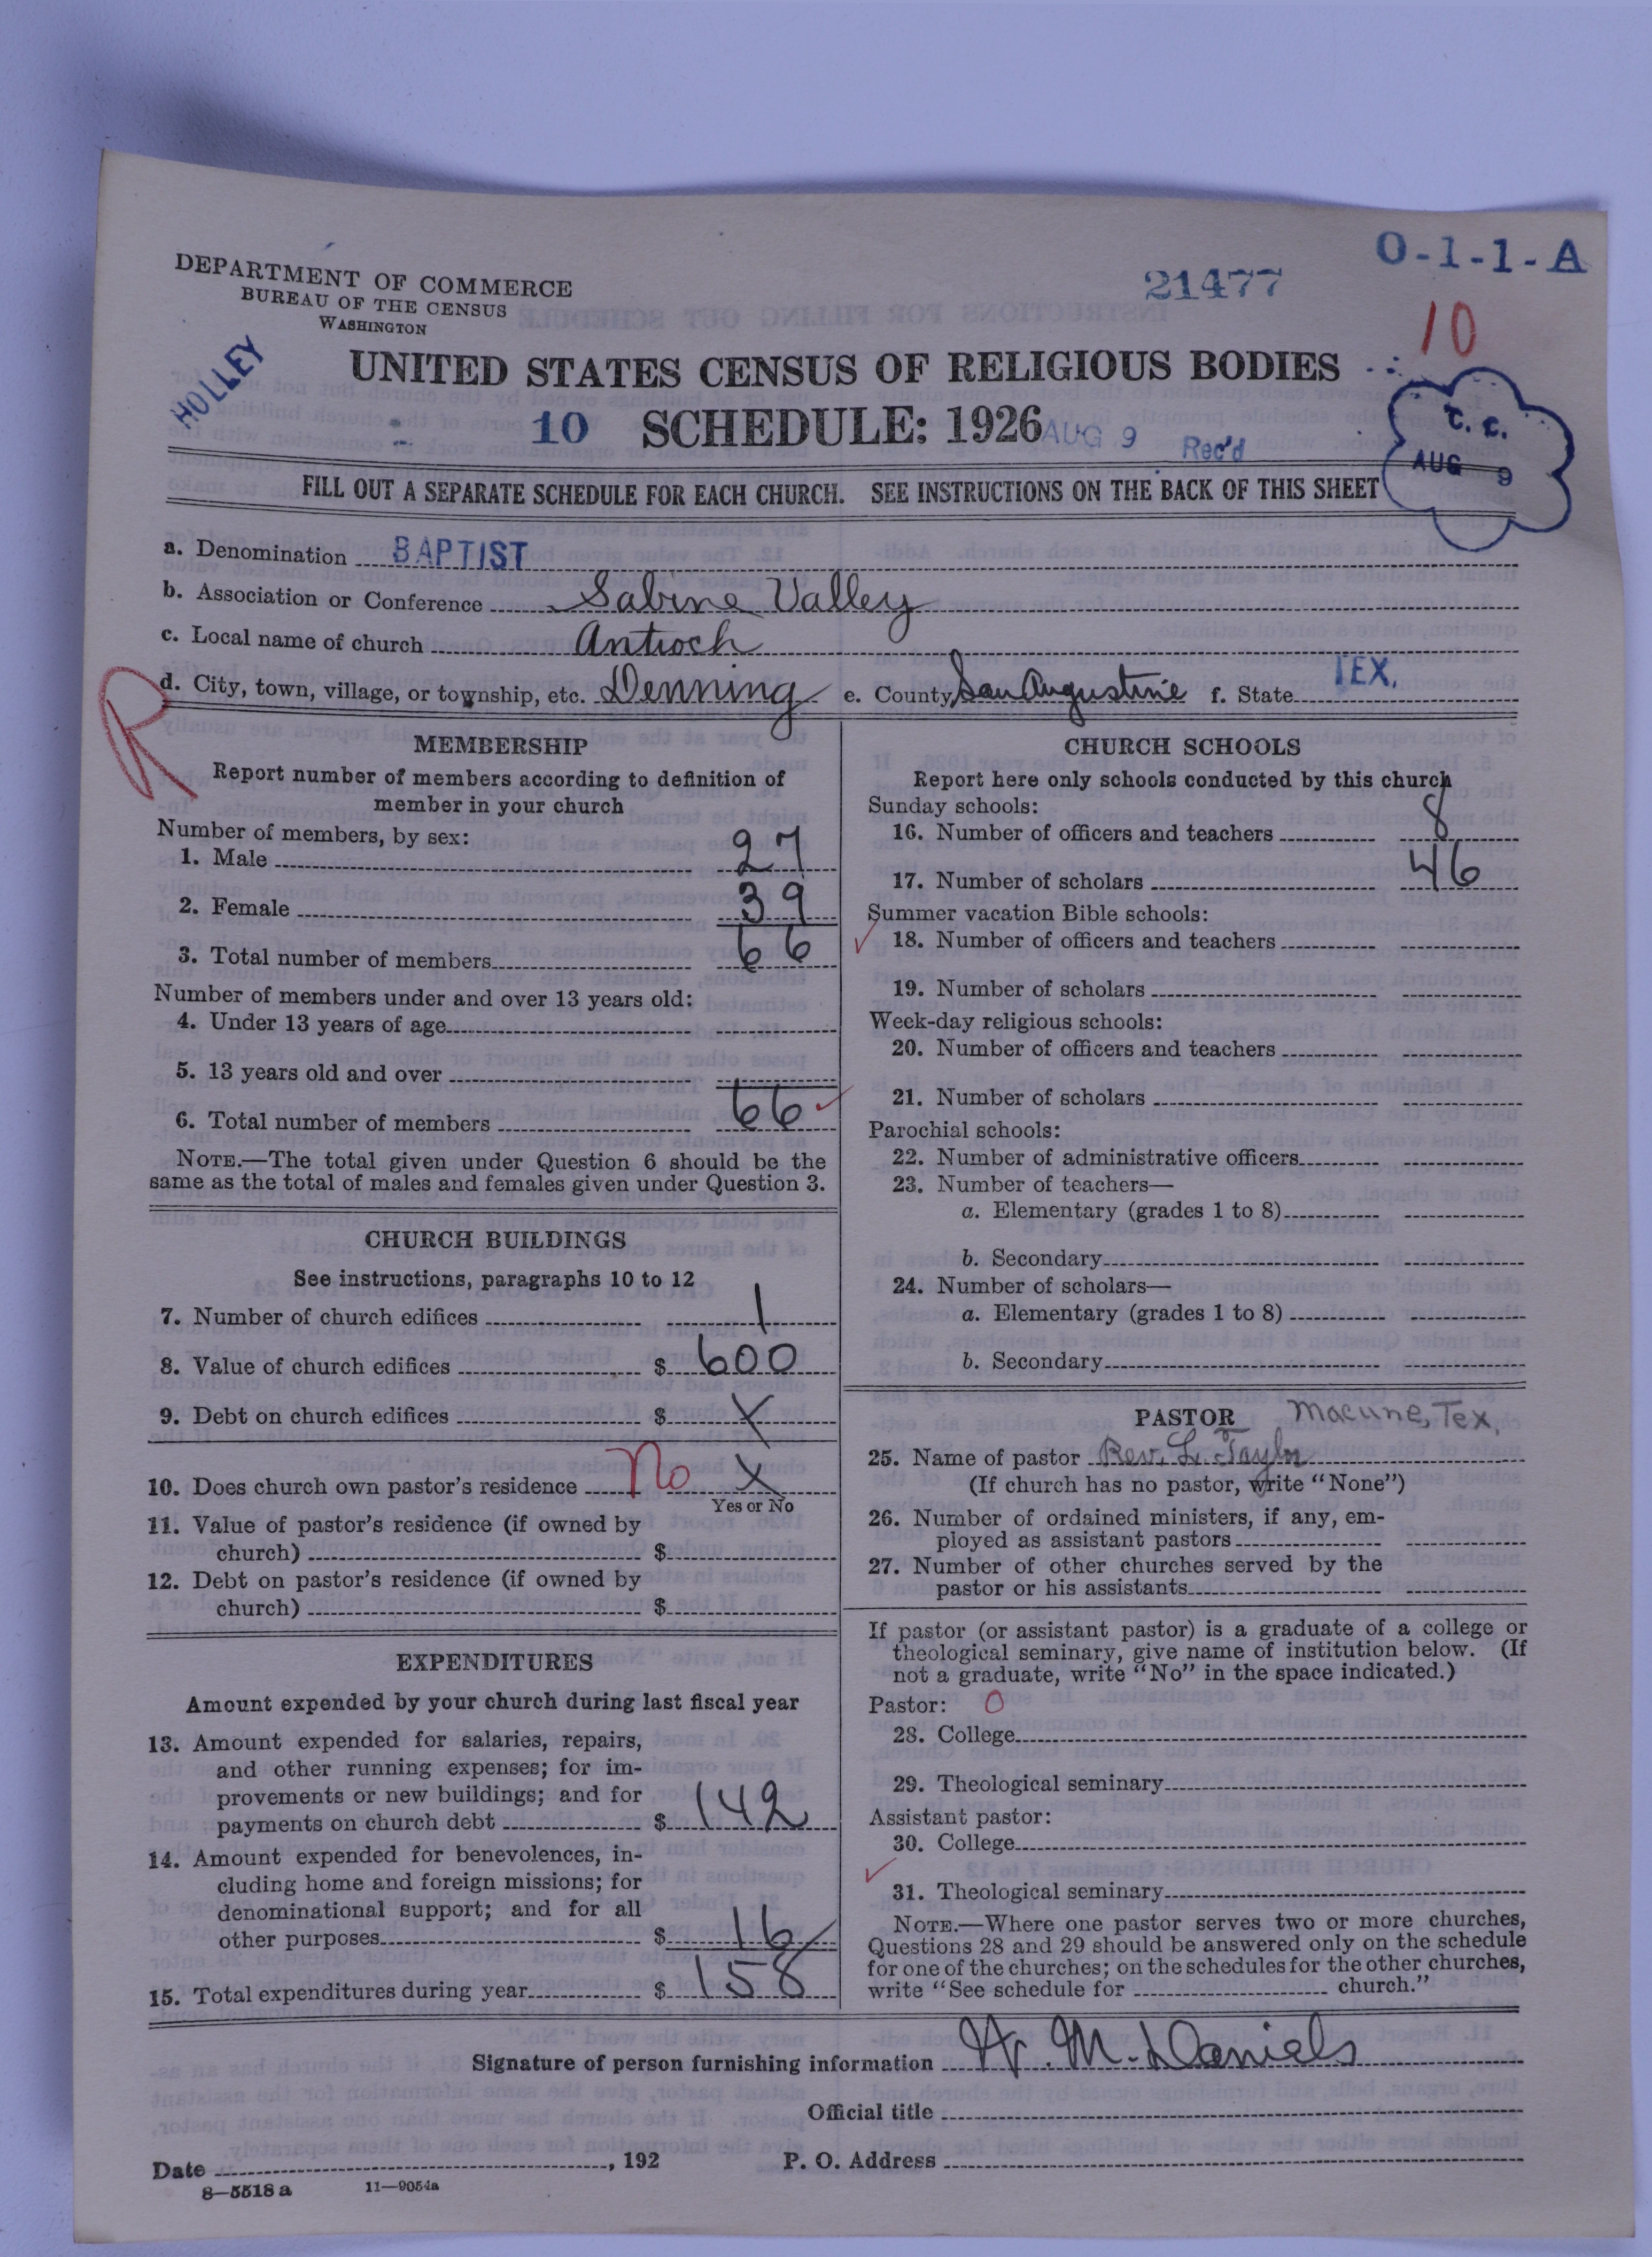 O-1-1-A
21477
10
DEPARTMENT OF COMMERCE
BUREAU OF THE CENSUS
WASHINGTON
HOLLEY
UNITED STATES CENSUS OF RELIGIOUS BODIES
10 SCHEDULE: 1926 AUG 9 Rec'd
T. C.
AUG 9
FILL OUT A SEPARATE SCHEDULE FOR EACH CHURCH. SEE INSTRUCTIONS ON THE BACK OF THIS SHEET
a. Denomination BAPTIST
b. Association or Conference Sabine Valley
c. Local name of church Antioch
R
d. City, town, village, or township, etc. Denning e. County San Augustine f. State TEX.
MEMBERSHIP
Report number of members according to definition of
member in your church
Number of members, by sex:
1. Male 27
2. Female 39
3. Total number of members 66
Number of members under and over 13 years old:
4. Under 13 years of age
5. 13 years old and over
6. Total number of members 66
NOTE.—The total given under Question 6 should be the
same as the total of males and females given under Question 3.
CHURCH BUILDINGS
See instructions, paragraphs 10 to 12
7. Number of church edifices 1
8. Value of church edifices $ 600
9. Debt on church edifices $ X
10. Does church own pastor's residence No X
Yes or No
11. Value of pastor's residence (if owned by
church) $
12. Debt on pastor's residence (if owned by
church) $
EXPENDITURES
Amount expended by your church during last fiscal year
13. Amount expended for salaries, repairs,
and other running expenses; for im-
provements or new buildings; and for
payments on church debt $ 142
14. Amount expended for benevolences, in-
cluding home and foreign missions; for
denominational support; and for all
other purposes $ 16
15. Total expenditures during year $ 158
CHURCH SCHOOLS
Report here only schools conducted by this church
Sunday schools:
16. Number of officers and teachers 8
17. Number of scholars 46
Summer vacation Bible schools:
18. Number of officers and teachers
19. Number of scholars
Week-day religious schools:
20. Number of officers and teachers
21. Number of scholars
Parochial schools:
22. Number of administrative officers
23. Number of teachers—
a. Elementary (grades 1 to 8)
b. Secondary
24. Number of scholars—
a. Elementary (grades 1 to 8)
b. Secondary
PASTOR Macune, Tex.
25. Name of pastor Rev. L. Taylor
(If church has no pastor, write "None")
26. Number of ordained ministers, if any, em-
ployed as assistant pastors
27. Number of other churches served by the
pastor or his assistants
If pastor (or assistant pastor) is a graduate of a college or
theological seminary, give name of institution below. (If
not a graduate, write "No" in the space indicated.)
Pastor: 0
28. College
29. Theological seminary
Assistant pastor:
30. College
31. Theological seminary
NOTE.—Where one pastor serves two or more churches,
Questions 28 and 29 should be answered only on the schedule
for one of the churches; on the schedules for the other churches,
write "See schedule for church."
Signature of person furnishing information W. M. Daniels
Official title
Date , 192 P. O. Address
8—5518 a 11—9054a